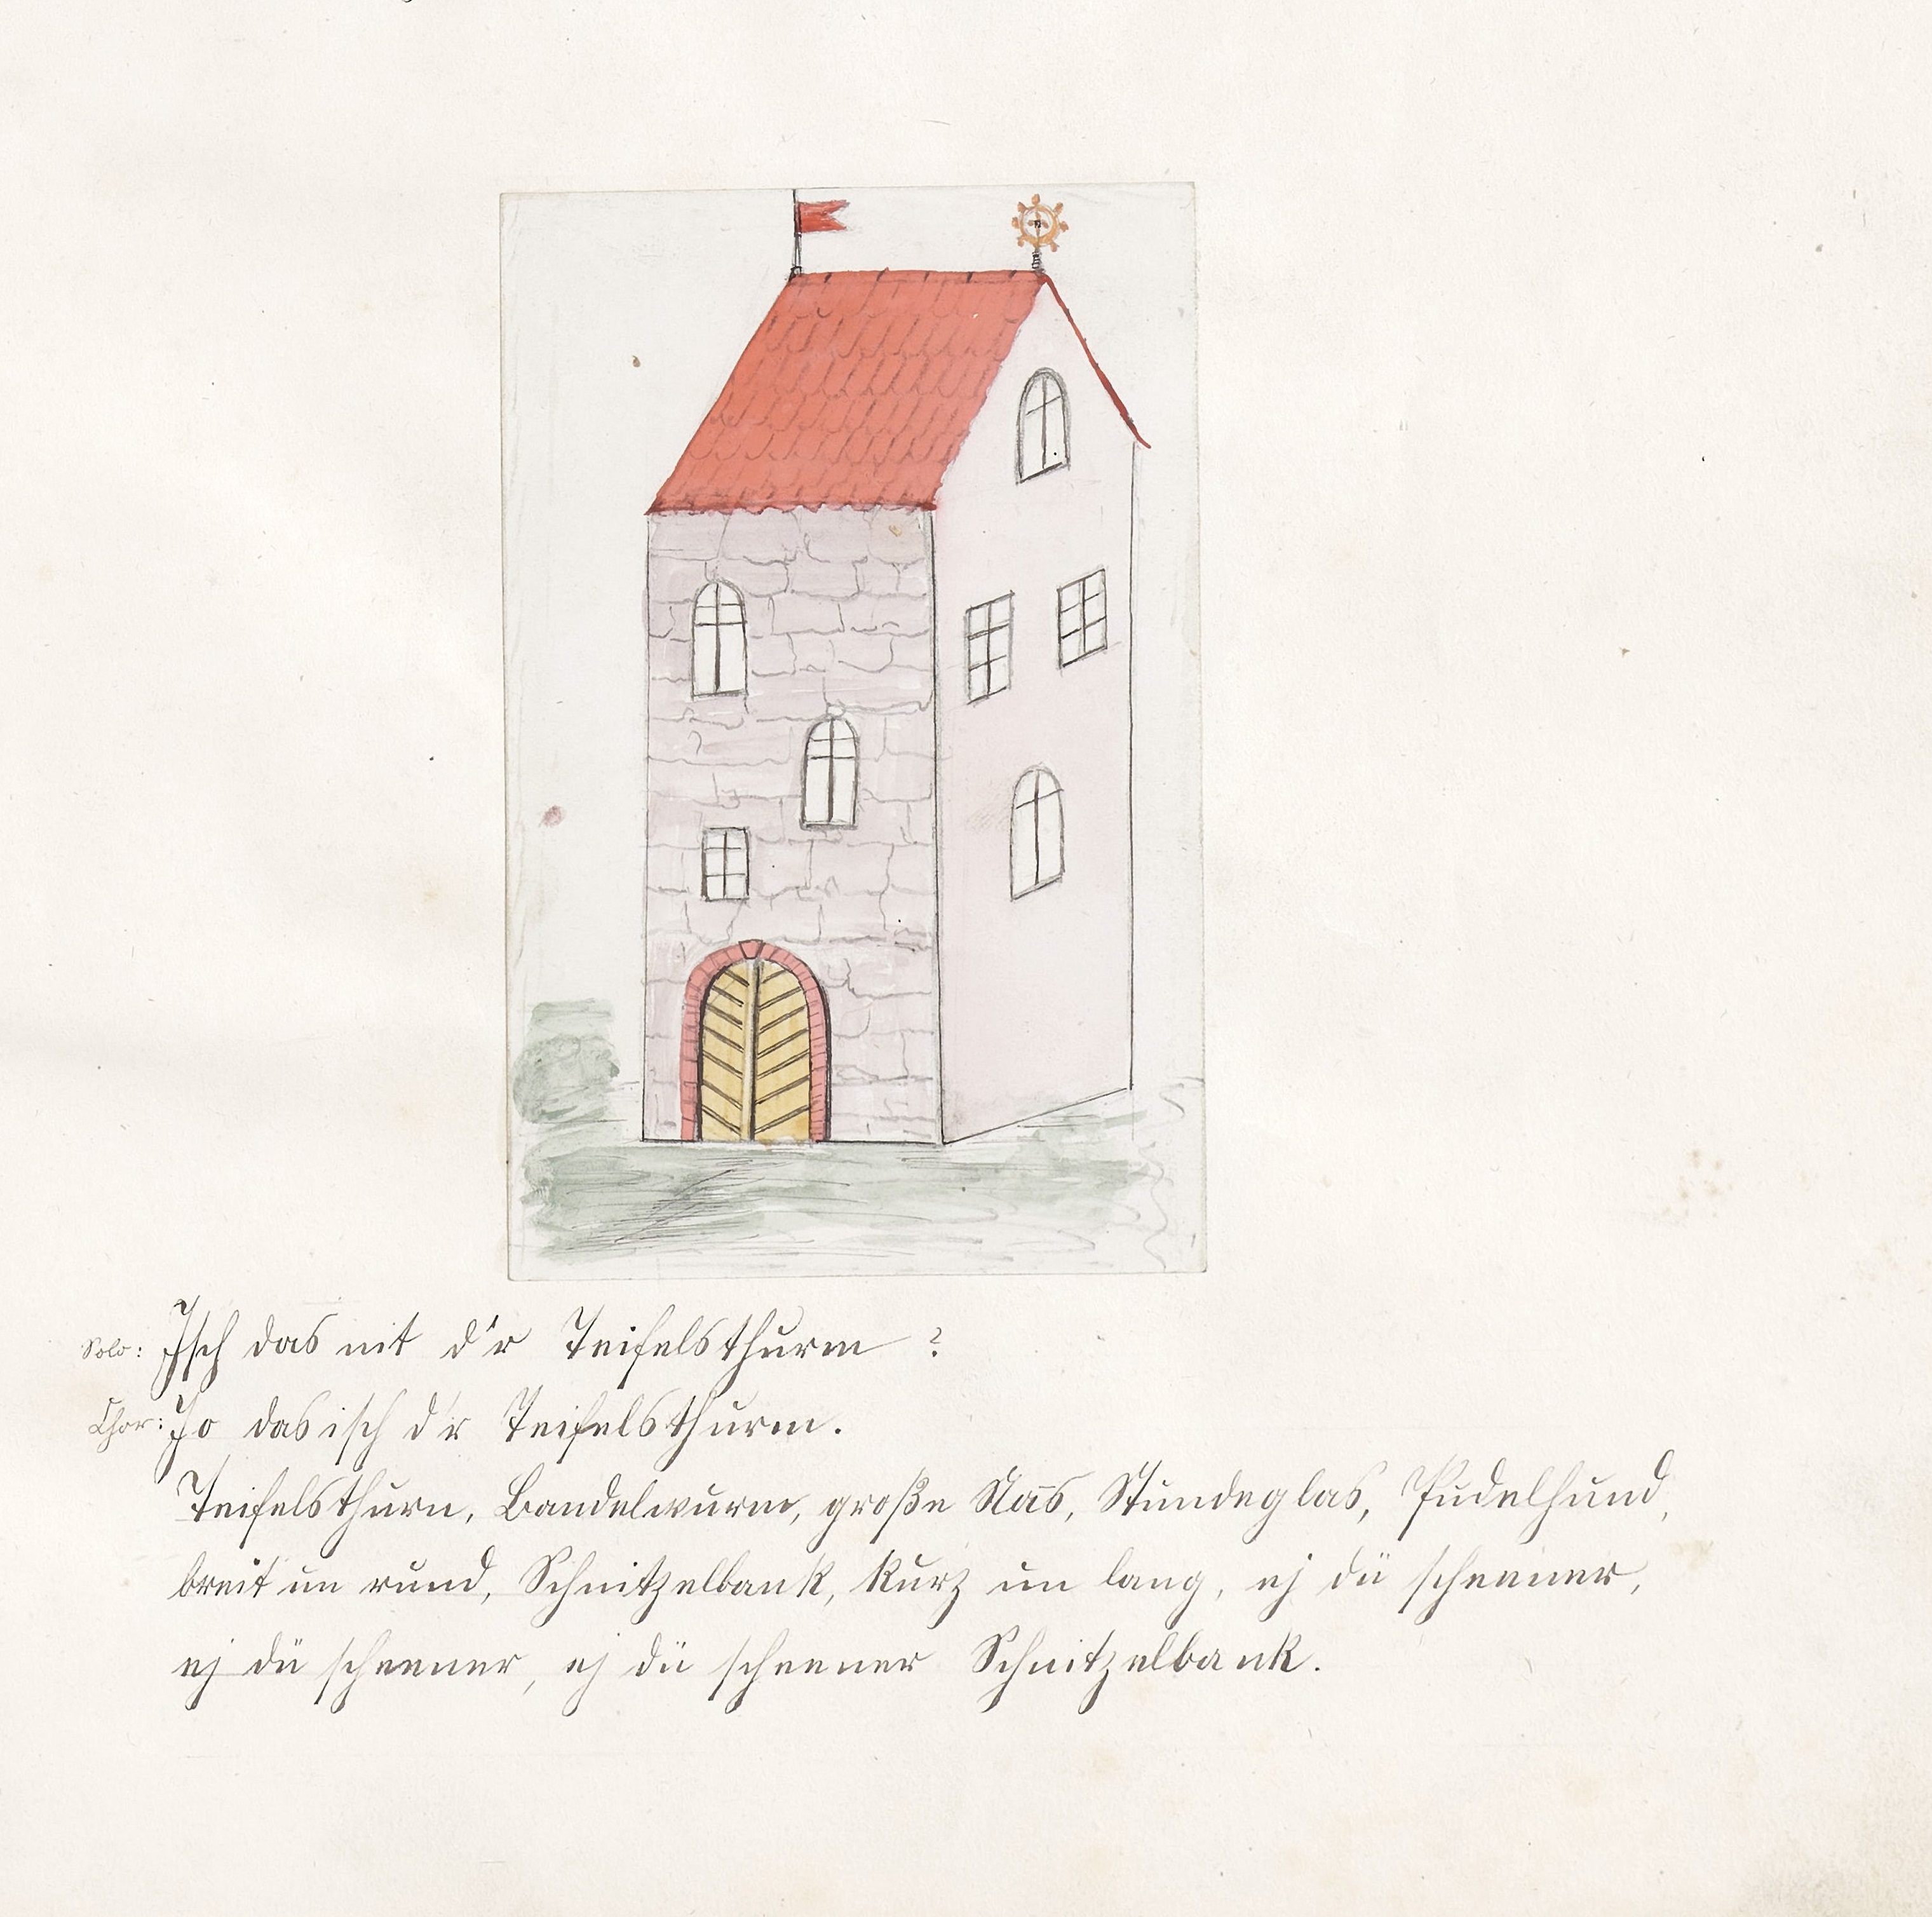 Solo: Isch das nit d'r Teifelsthurm ?
Chor: Jo das isch d'r Teifelsthurm.
Teifelsthurn, Bandelwurm, große Nas, Stundeglas, Pudelhund,
breit un rund, Schnitzelbank, kurz un lang, ej dü scheener,
ej dü scheener, ej dü scheener Schnitzelbank.